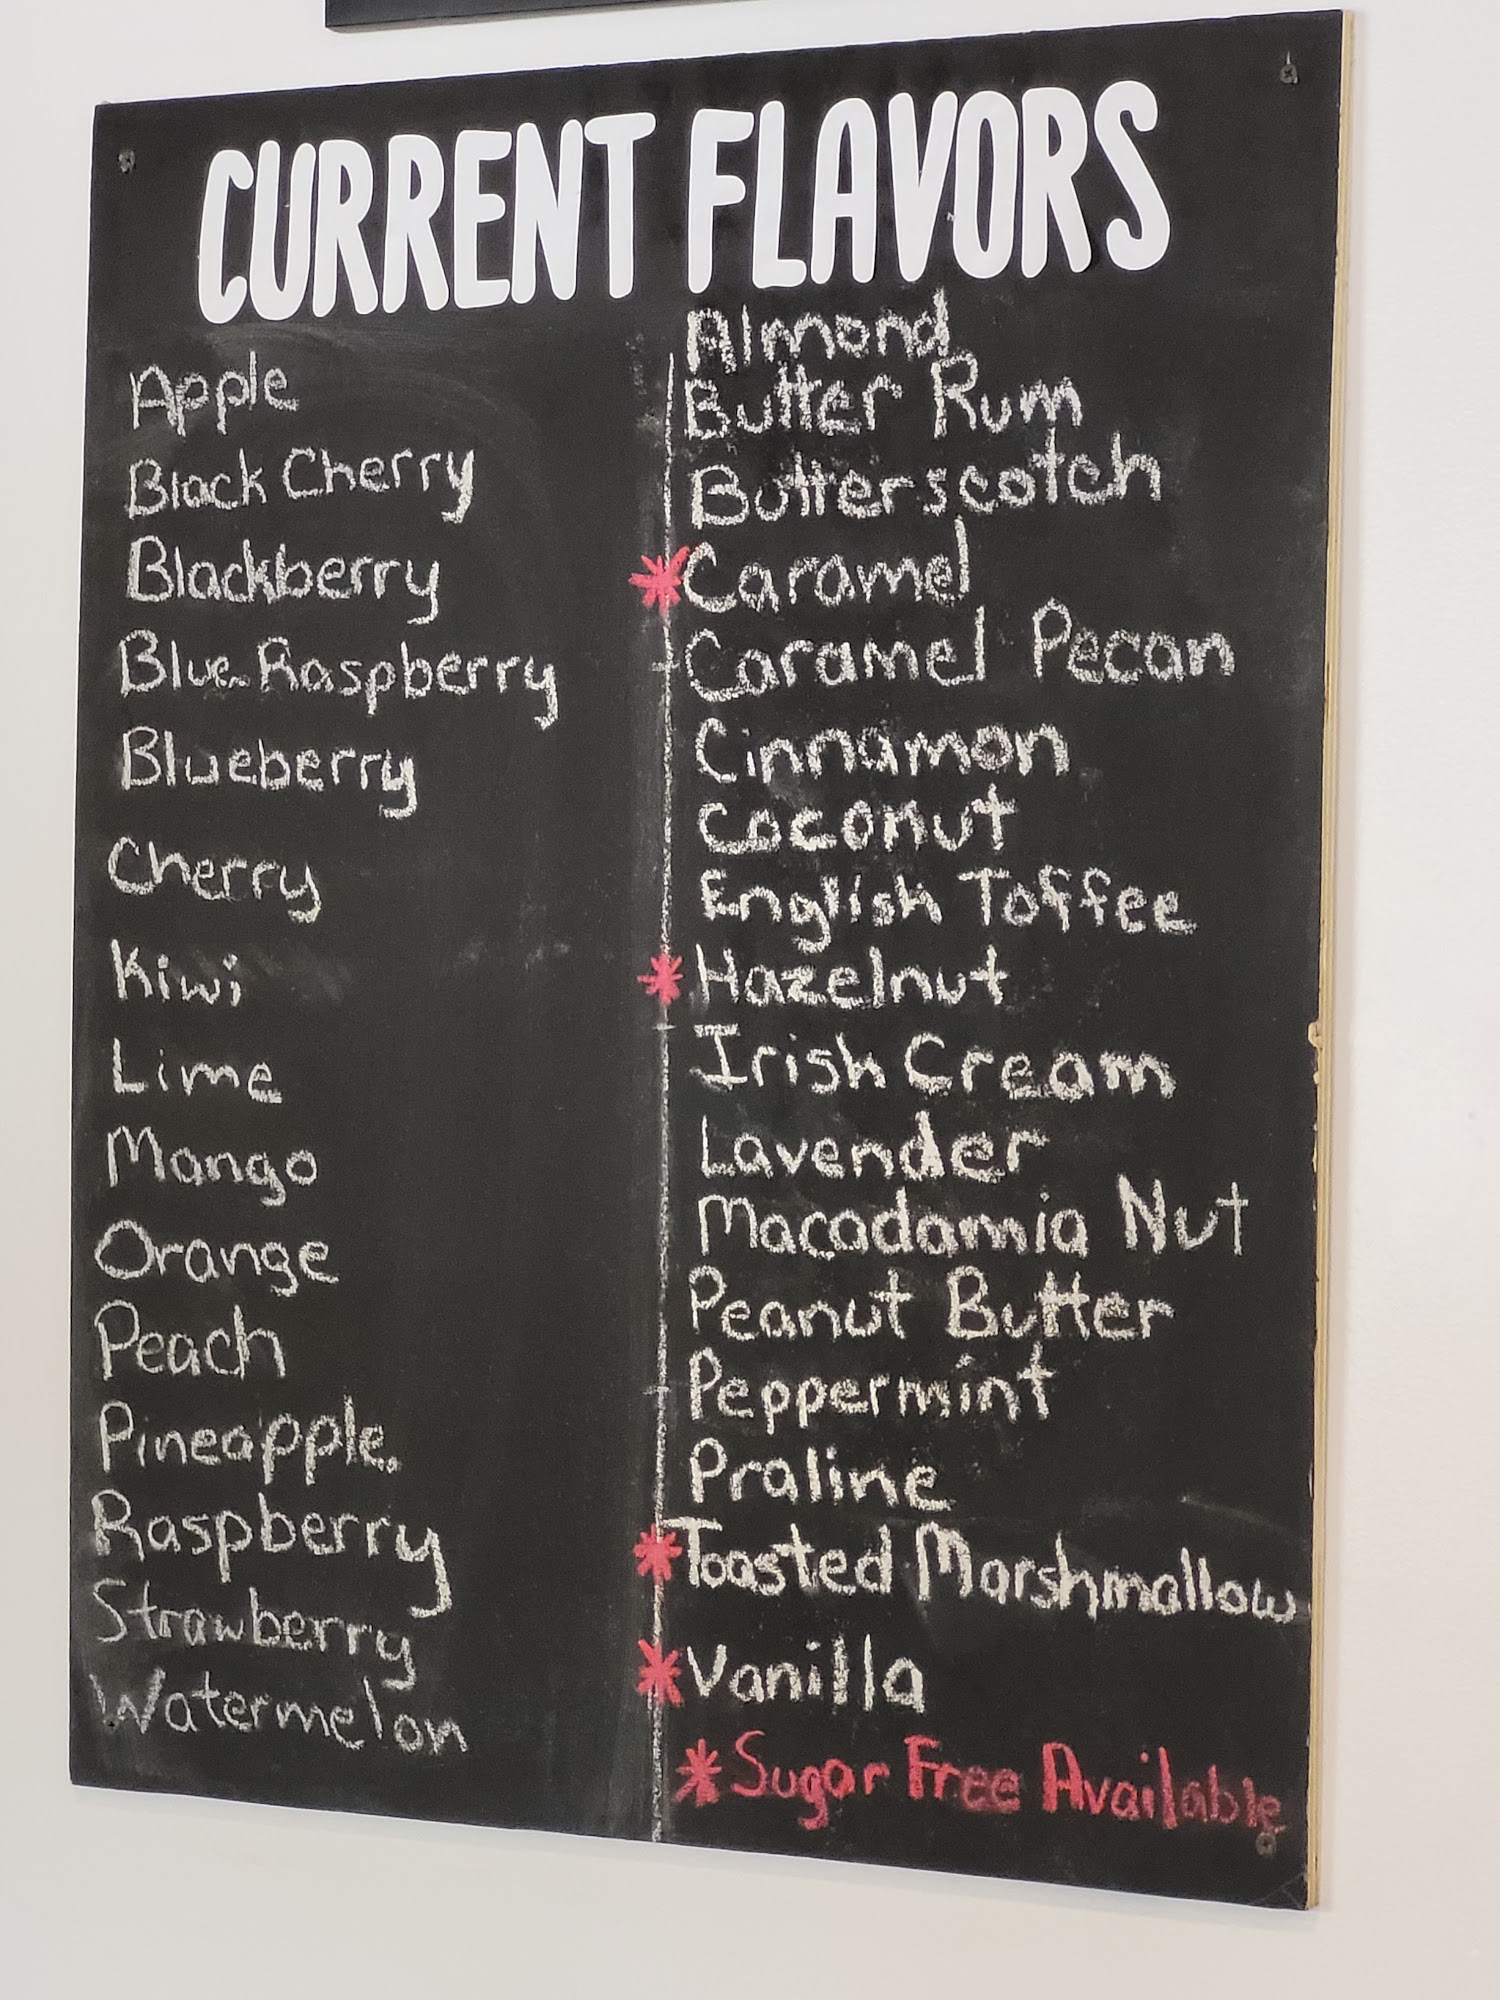 CURRENT FLAVORS
Apple
Black Cherry
Blackberry
Blue Raspberry
Blueberry
Cherry
Kiwi
Lime
Mango
Orange
Peach
Pineapple
Raspberry
Strawberry
Watermelon
Almond
Butter Rum
Butterscotch
*Caramel
Caramel Pecan
Cinnamon
Coconut
English Toffee
*Hazelnut
Irish Cream
Lavender
Macadamia Nut
Peanut Butter
Peppermint
Praline
*Toasted Marshmallow
*Vanilla
*Sugar Free Available